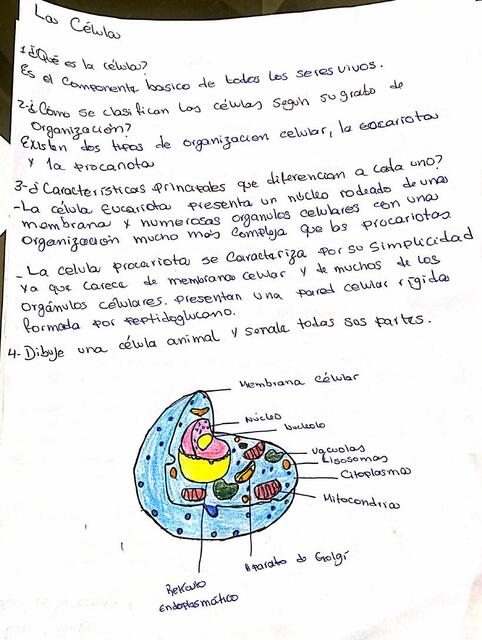 La Célula
1¿Qué es la célula?
Es el componente basico de todos los seres vivos.
2-¿Cómo se clasifican las células segun su grado de
Organización?
Existen dos tipos de organización celular, la eocariota
y la procariota
3-¿Características principales que diferencian a cada uno?
-La célula Eucariota presenta un núcleo rodeado de una
membrana y numerosas organulos celulares con una
Organización mucho mas compleja que las procariotas.
- La celula procariota se Caracteriza por su simplicidad
ya que carece de membrana celular y de muchos de los
Orgánulos célulares. presentan una pared celular rígida
formada por peptidoglucano.
4- Dibuje una célula animal y señale todas sus partes.
Membrana célular
Núcleo
Nucleolo
Vacuolas
Lisosomas
Citoplasma
Mitocondria
Aparato de Golgí
Retículo
endoplasmático